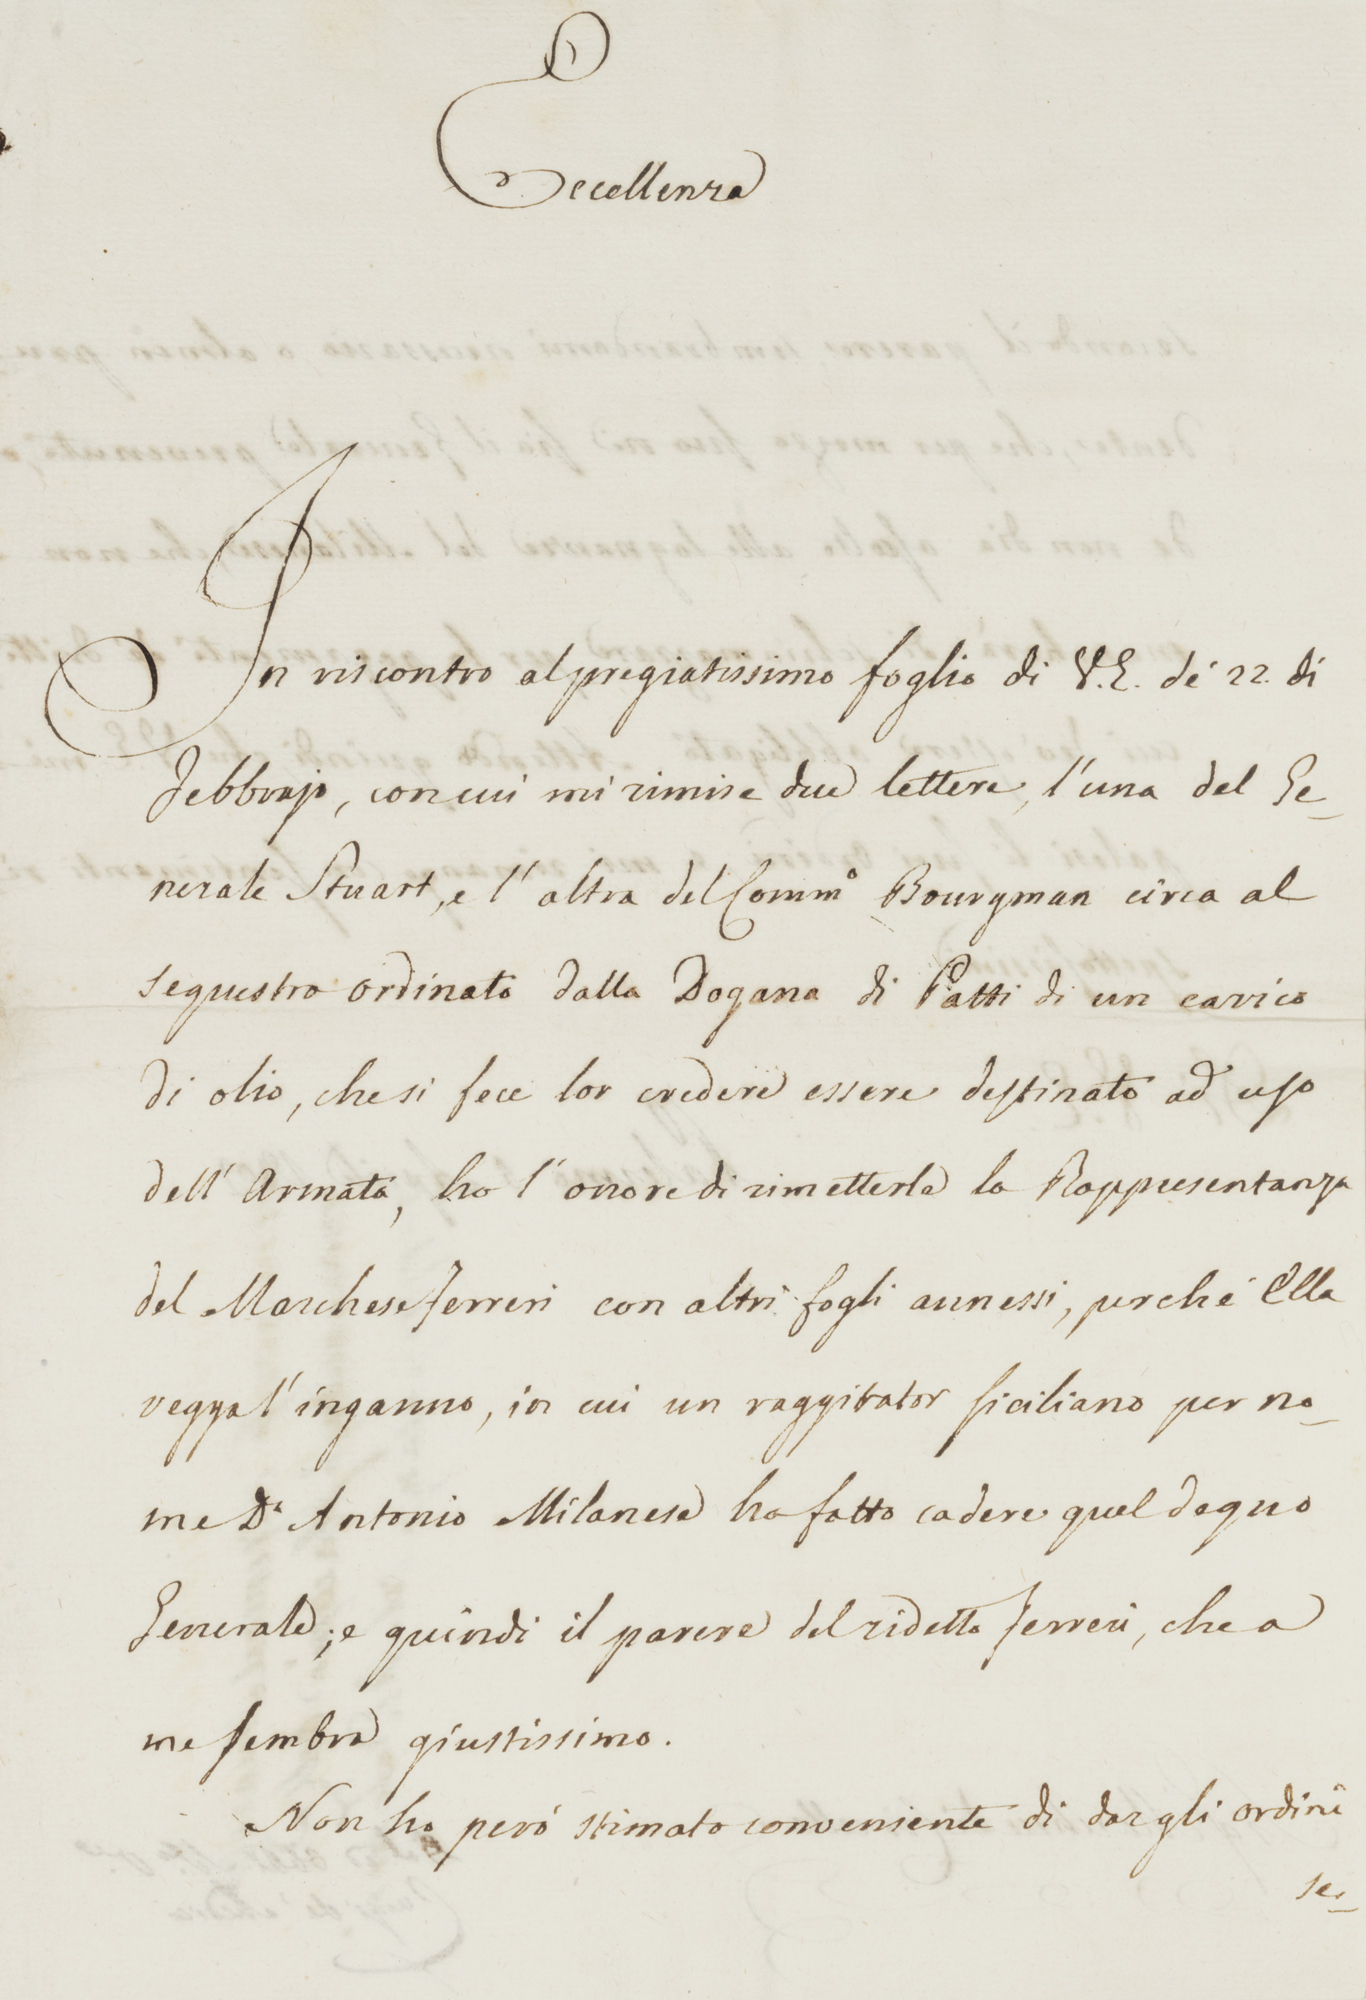 Eccellenza
In riscontro al pregiatissimo foglio di V.E. de' 22. di
Febbrajo, con cui mi rimise due lettere, l'una del Ge-
nerale Stuart, e l'altra del Comm.º Bourgman circa al
sequestro ordinato dalla Dogana di Patti di un carico
di olio, che si fece lor credere essere destinato ad uso
dell'Armata, ho l'onore di rimetterle la Rappresentanza
del Marchese Ferreri con altri fogli annessi, perché Ella
vegga l'inganno, in cui un raggirator Siciliano per no-
me D.ⁿ Antonio Milanese ha fatto cadere quel degno
Generale; e quindi il parere del ridetto Ferreri, che a
me sembra giustissimo.
Non ho però stimato conveniente di dargli ordini
se-